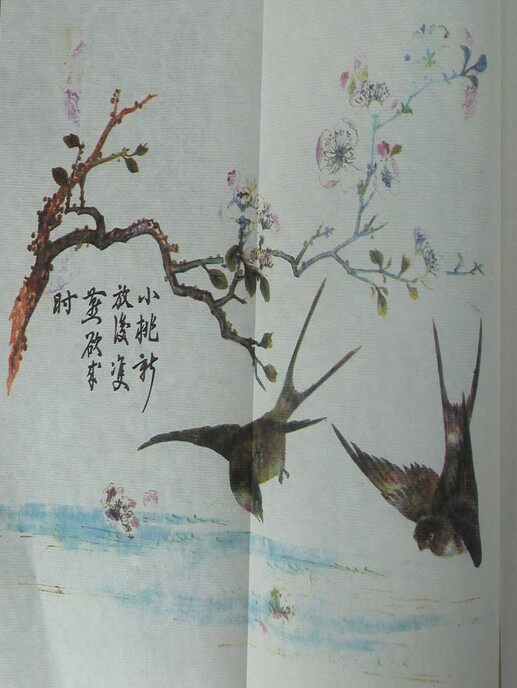 小桃新
放後雙
燕欲来
时